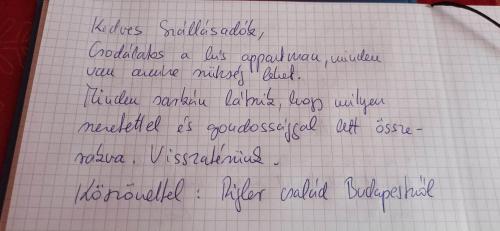 Kedves Szállásadók,
Csodálatos a kis appartman, minden
van amire szükség lehet.
Minden sarkán látszik, hogy milyen
szeretettel és gondossággal lett össze-
rakva. Visszatérünk.
Köszönettel: család Budapestről